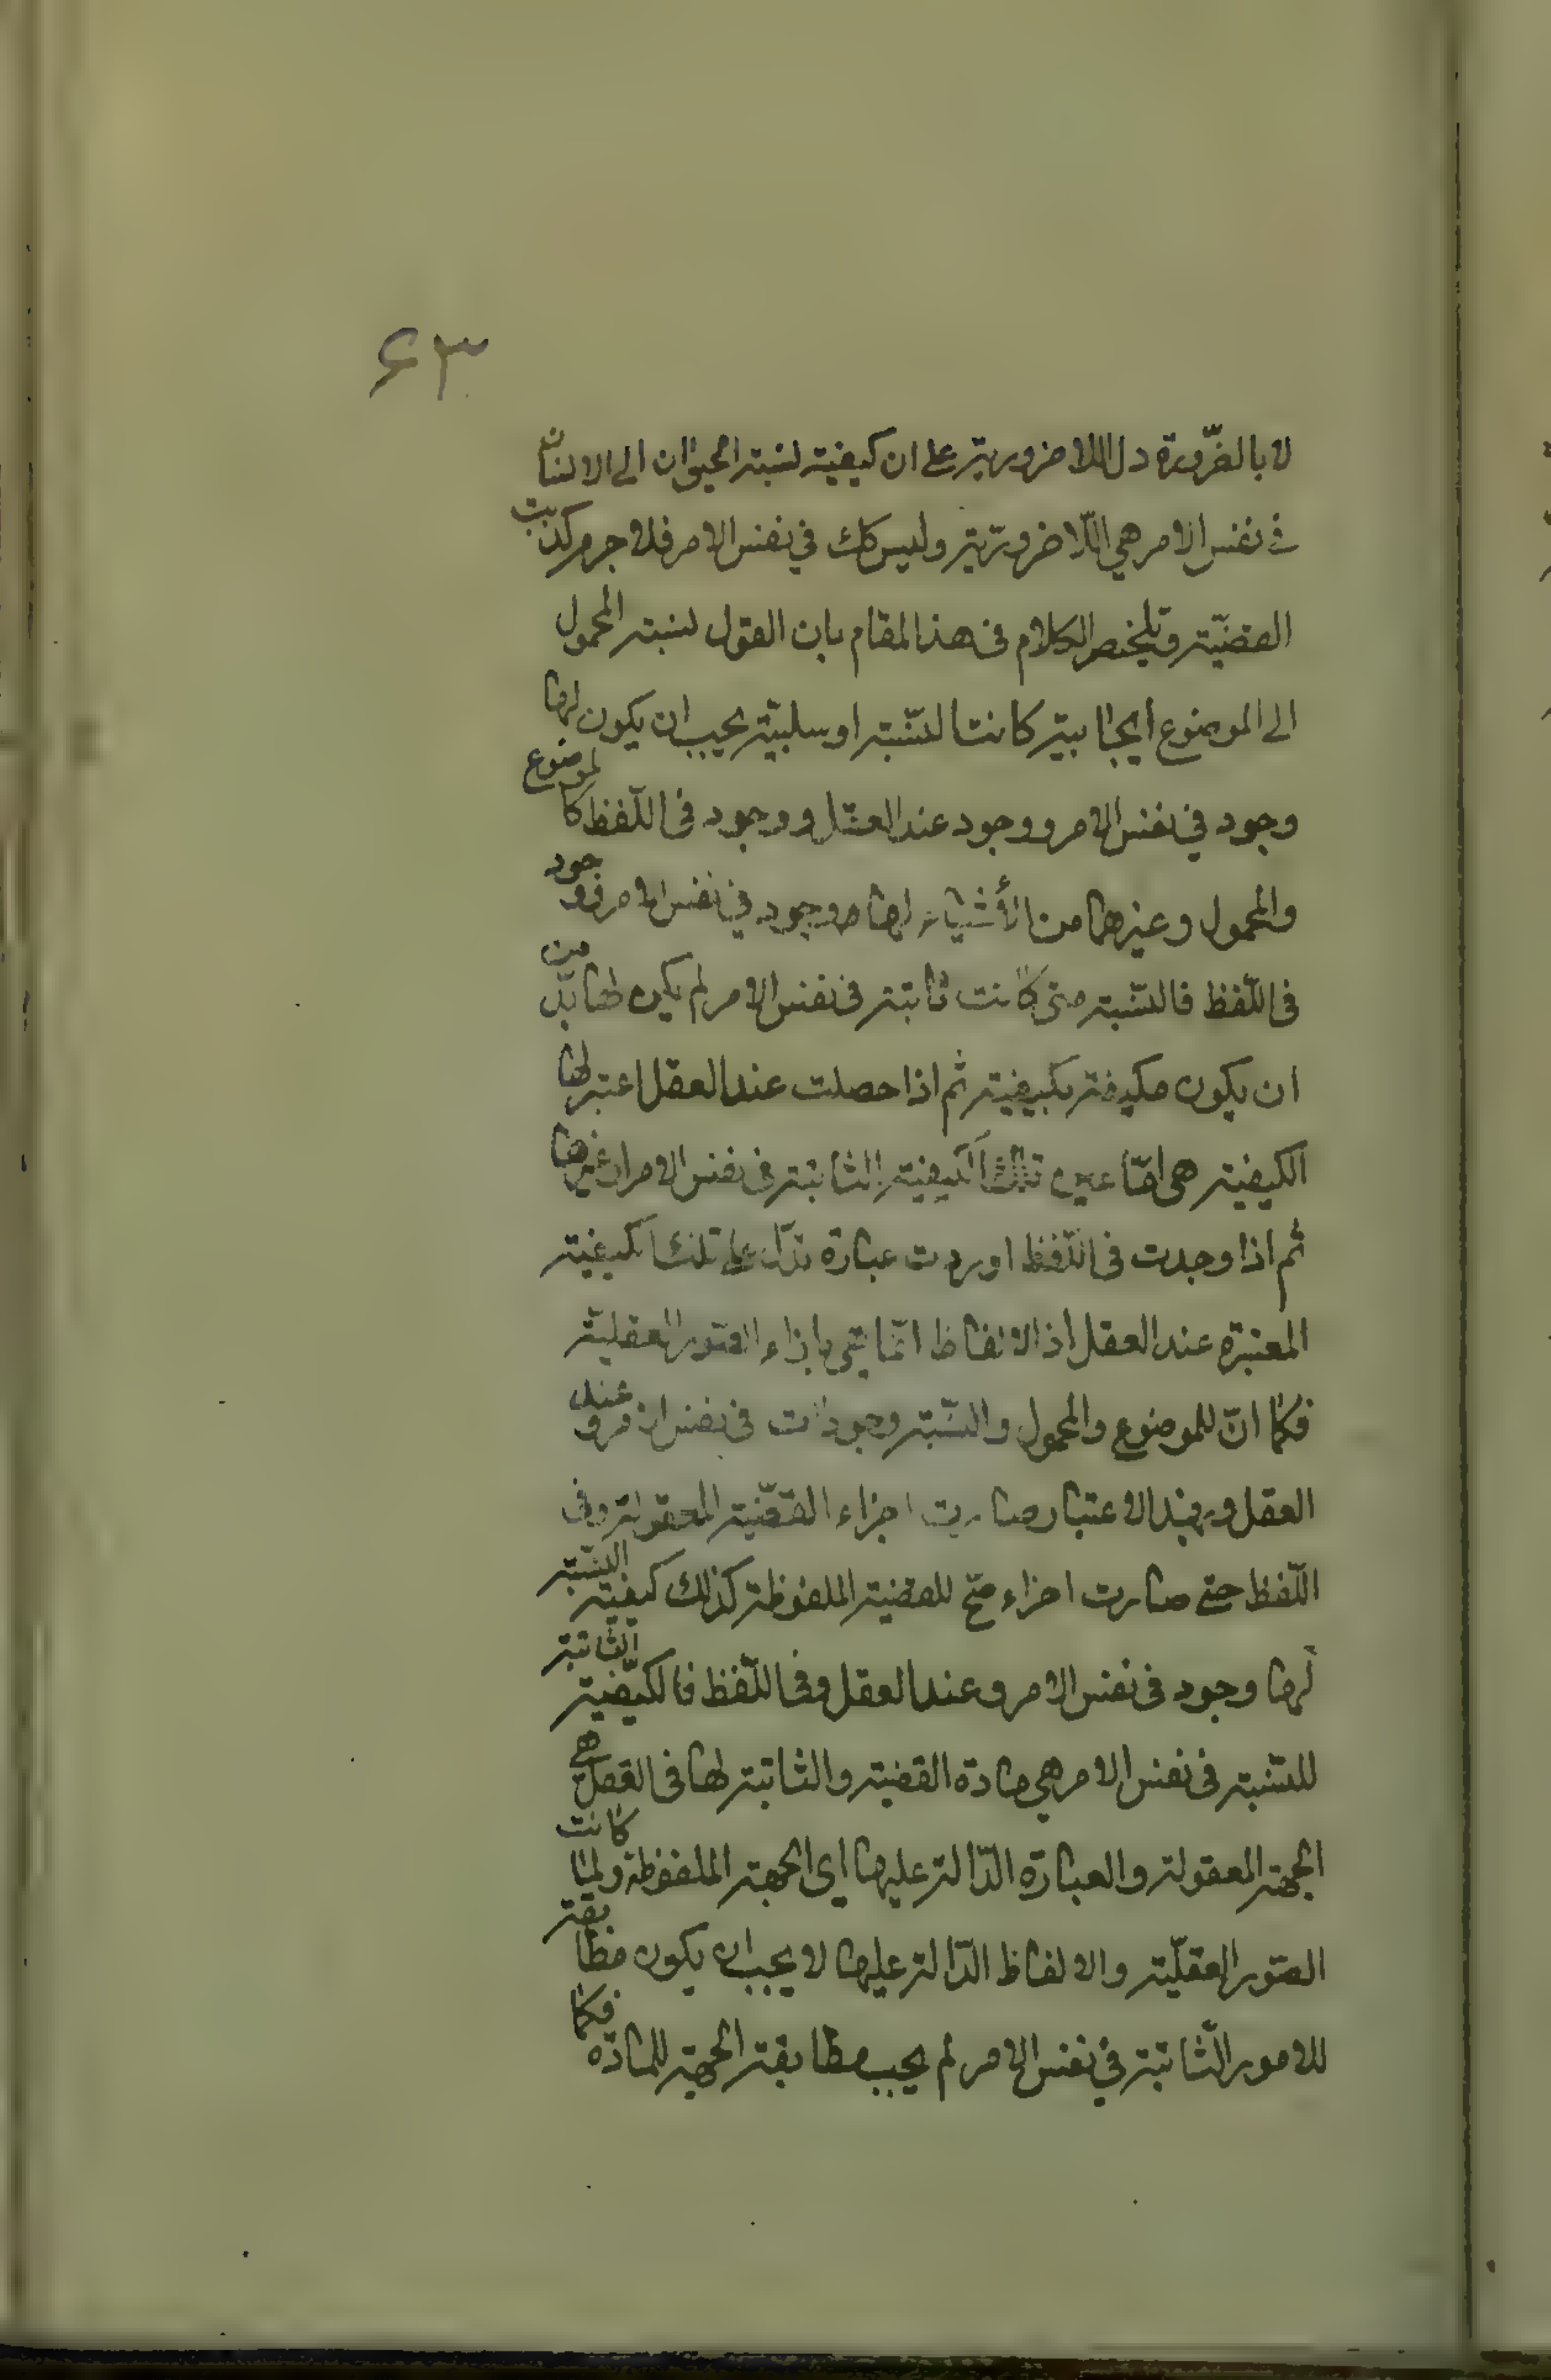 ٦٣
لا بالضّرورة دل اللاضرورية على ان كيفية نسبة الحيوان الى الانسان
في نفس الامر هي اللّاضروريّة وليس كك في نفس الامر فلا جرم كذبت
القضيّة وتلخيص الكلام فى هذا المقام بان القول نسبة المحمول
الى الموضوع ايجابية كانت النسّبة او سلبيّة يجب ان يكون لها
وجود في نفس الامر ووجود عند العقل ووجود فى اللّفظ كالموضوع
والمحمول وغيرهما من الأشياء لها وجود في نفس الامر ووجود
فى اللّفظ فالنسّبة متى كانت ثابتة فى نفس الامر لم يكن لها بدّ من
ان يكون مكيفة بكيفية ثم اذا حصلت عند العقل اعتبر لها
الكيفية هى امّا عين تلك الكيفية الثابتة فى نفس الامر او غيرها
ثم اذا وجدت فى اللّفظ اوردت عبارة تدلّ على تلك الكيفية
المعتبرة عند العقل اذ الالفاظ انّما هى بازاء الصّور العقليّة
فكما انّ للموضوع والمحمول والنسّبة وجودات فى نفس الامر وعند
العقل وبهذا الاعتبار صارت اجزاء القضّية المعقولة وفى
اللّفظ حتى صارت اجزاء للقضية الملفوظة كذلك كيفية النسّبة
لها وجود فى نفس الامر وعند العقل وفى اللّفظ فالكيّفية الثابتة
للنسّبة فى نفس الامر هي مادة القضية والثابتة لها فى العقل هى
الجهة المعقولة والعبارة الدّالة عليها اى الجهة الملفوظة ولما كانت
الصّور العقليّة والالفاظ الدّالة عليها لا يجب ان يكون مطابقة
للامور الثّابتة في نفس الامر لم يجب مطابقة الجهة للمادّة فكما